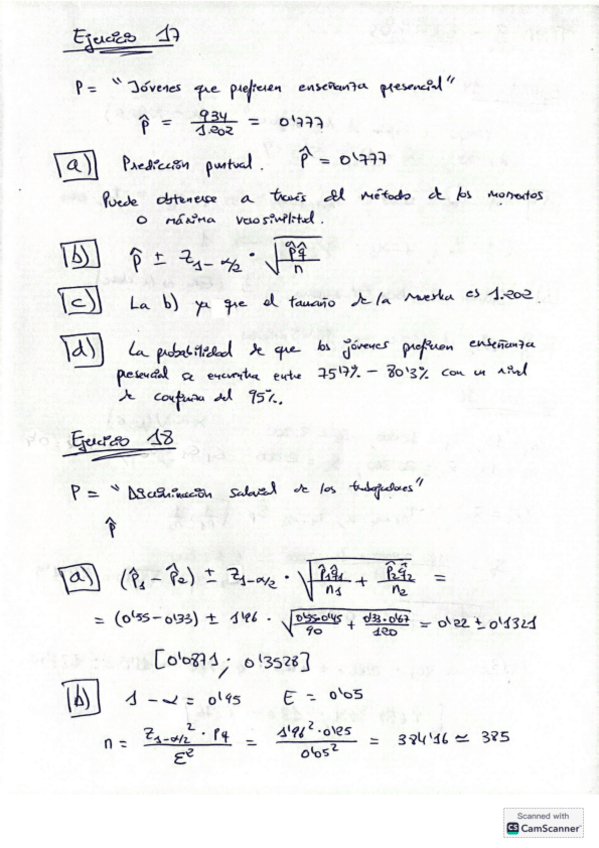 Ejercicio 17
P = "Jóvenes que prefieren enseñanza presencial"
p̂ = 934/1.202 = 0'777
a) Predicción puntual. p̂ = 0'777
Puede obtenerse a través del método de los momentos
o máxima verosimilitud.
b) p̂ ± Z₁₋α/₂ · √(p̂q̂/n)
c) La b) ya que el tamaño de la muestra es 1.202.
d) La probabilidad de que los jóvenes prefieren enseñanza
presencial se encuentra entre 75'17% - 80'3% con un nivel
de confianza del 95%.
Ejercicio 18
P = "Discriminación salarial de los trabajadores"
p̂
a) (p̂₁ - p̂₂) ± Z₁₋α/₂ · √(p̂₁q̂₁/n₁ + p̂₂q̂₂/n₂) =
= (0'55 - 0'33) ± 1'96 · √(0'55·0'45/90 + 0'33·0'67/120) = 0'22 ± 0'1321
[0'0871 ; 0'3528]
b) 1 - α = 0'95 E = 0'05
n = Z₁₋α/₂² · pq/ε² = 1'96² · 0'25/0'05² = 384'16 ≃ 385
Scanned with
CS CamScanner